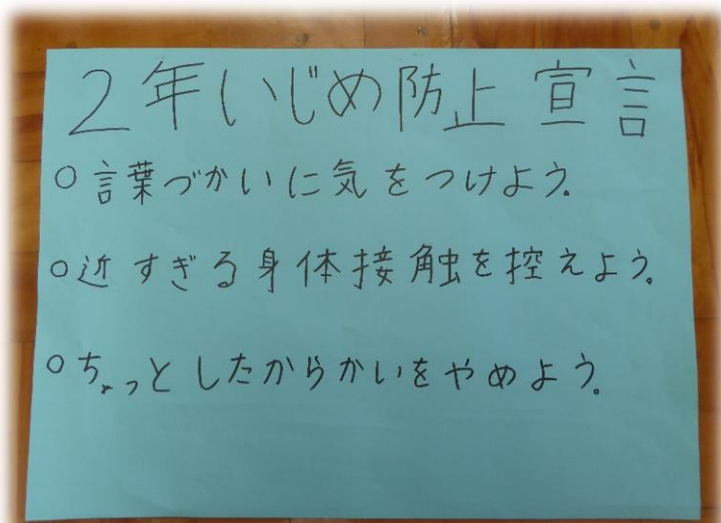 2年いじめ防止宣言
○言葉づかいに気をつけよう。
○近すぎる身体接触を控えよう。
○ちょっとしたからかいをやめよう。